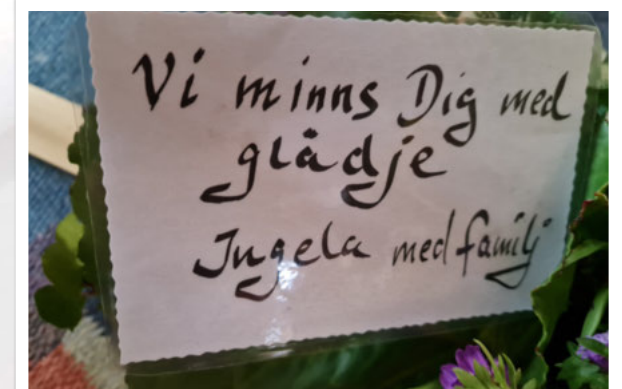 Vi minns Dig med
glådje
Ingela med familj